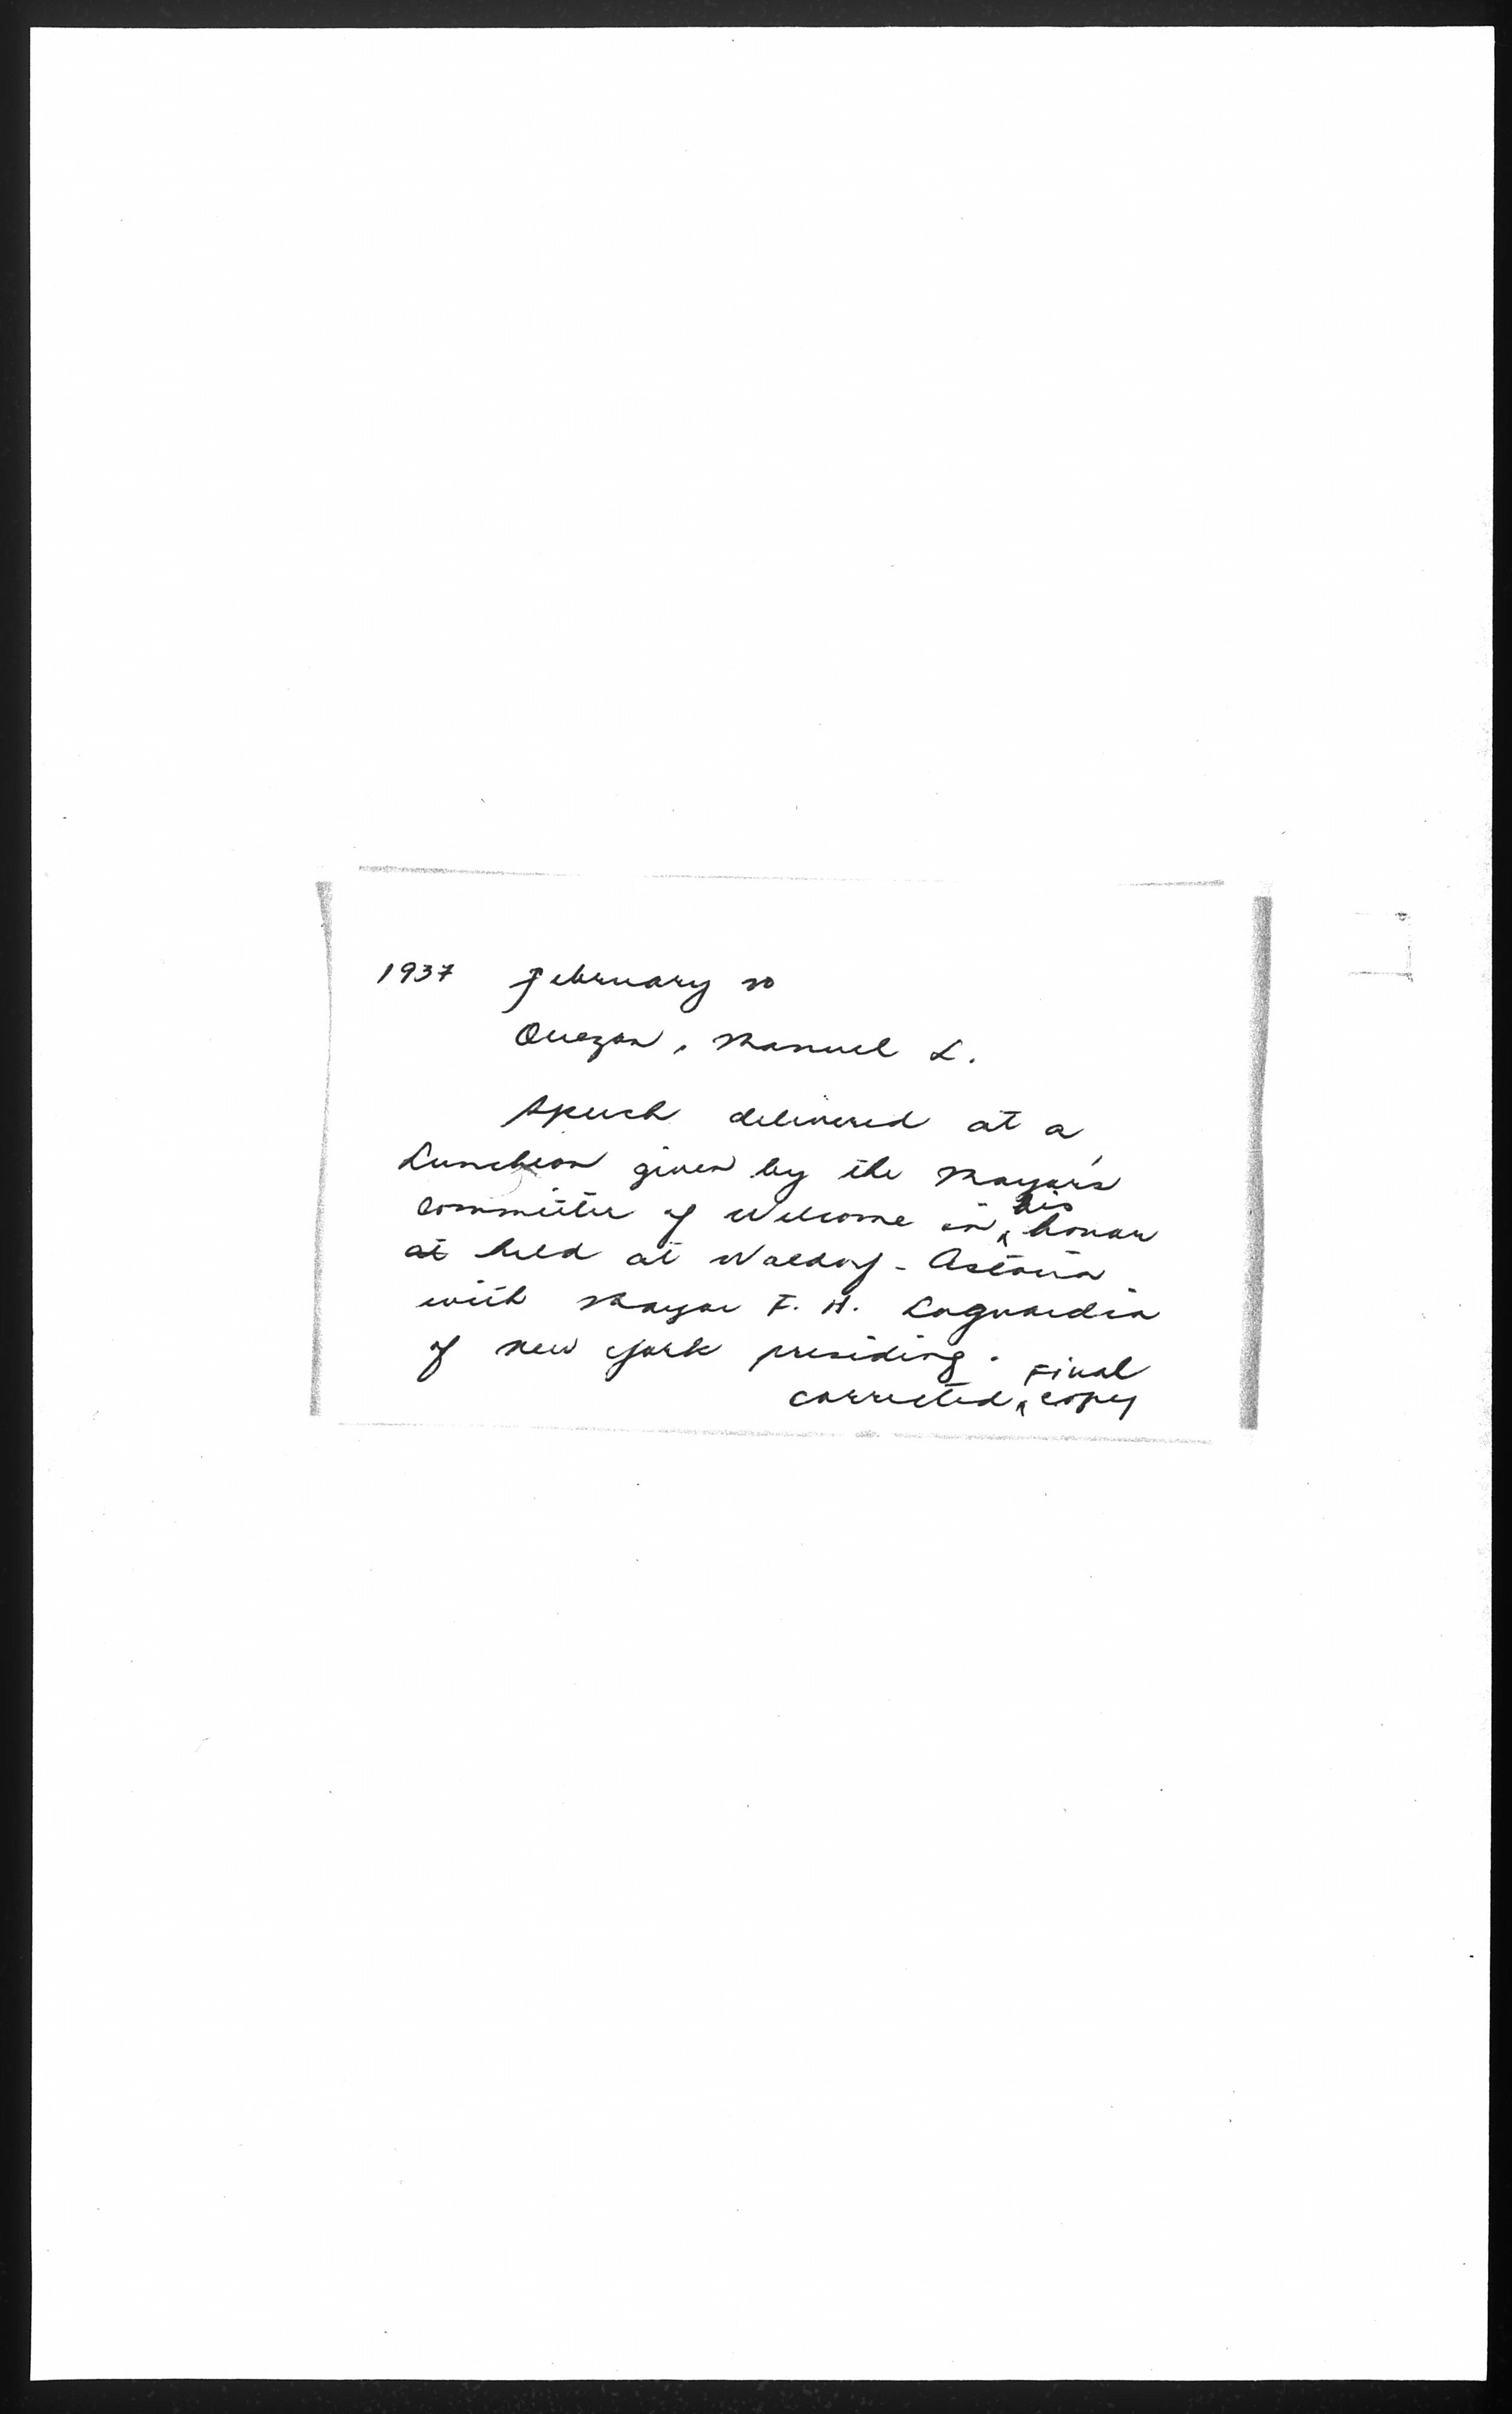 1937 February 20
Quezon, Manuel L.
Speech delivered at a
Luncheon given by the Mayor's
Committee of Welcome in his honor
at held at Waldorf - Astoria
with Mayor F. H. Laguardia
of New York presiding.
corrected Final copy